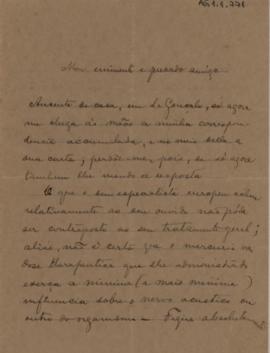 AG1.1.771
Meu eminente e prezado amigo
Ausente de casa, em S. Gonçalo, só agora
me chega às mãos a minha correspon-
dencia accumulada, e no meio della a
sua carta; perdôe-me, pois, se só agora
tambem lhe mando a resposta
O que o seu especialista europeu
relativamente ao seu ouvido não póde
ser contraposto ao seu tratamento geral;
aliás, não é certo que o mercurio na
dose therapeutica que lhe administrão
exerça a minima (a mais minima)
influencia sobre o nervo acustico ou
outro do organismo — Fique absoluta